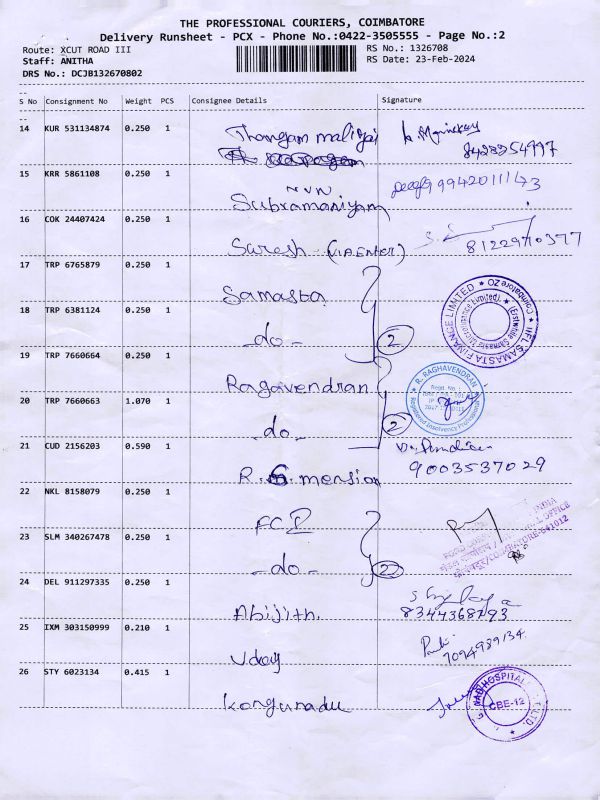 THE PROFESSIONAL COURIERS, COIMBATORE
Delivery Runsheet - PCX - Phone No.:0422-3505555 - Page No.:2
Route: XCUT ROAD III
Staff: ANITHA
DRS No.: DCJB132670802
RS No.: 1326708
RS Date: 23-Feb-2024
S No Consignment No Weight PCS Consignee Details Signature
14 KUR 531134874 0.250 1
Thangam maligai
8428354997
15 KRR 5861108 0.250 1
NVN
Subramaniyam
9994201143
16 COK 24407424 0.250 1
Suresh
8122970377
17 TRP 6765879 0.250 1
Samasta
18 TRP 6381124 0.250 1
-do-
2
IIFL SAMASTA FINANCE LIMITED
(Erstwhile Samasta Microfinance Limited)
Coimbatore ZO
19 TRP 7660664 0.250 1
Ragavendran
20 TRP 7660663 1.070 1
-do-
2
R. RAGHAVENDRAN
Regst. No.:
Registered Insolvency Professional
21 CUD 2156203 0.590 1
R.S. mension
9003537029
22 NKL 8158079 0.250 1
FCI
23 SLM 340267478 0.250 1
-do-
2
INDIA
OFFICE
COIMBATORE-641012
24 DEL 911297335 0.250 1
Abijith.
8344368793
25 IXM 303150999 0.210 1
Uday
7094989134
26 STY 6023134 0.415 1
Kongunadu
HOSPITAL
CBE-12